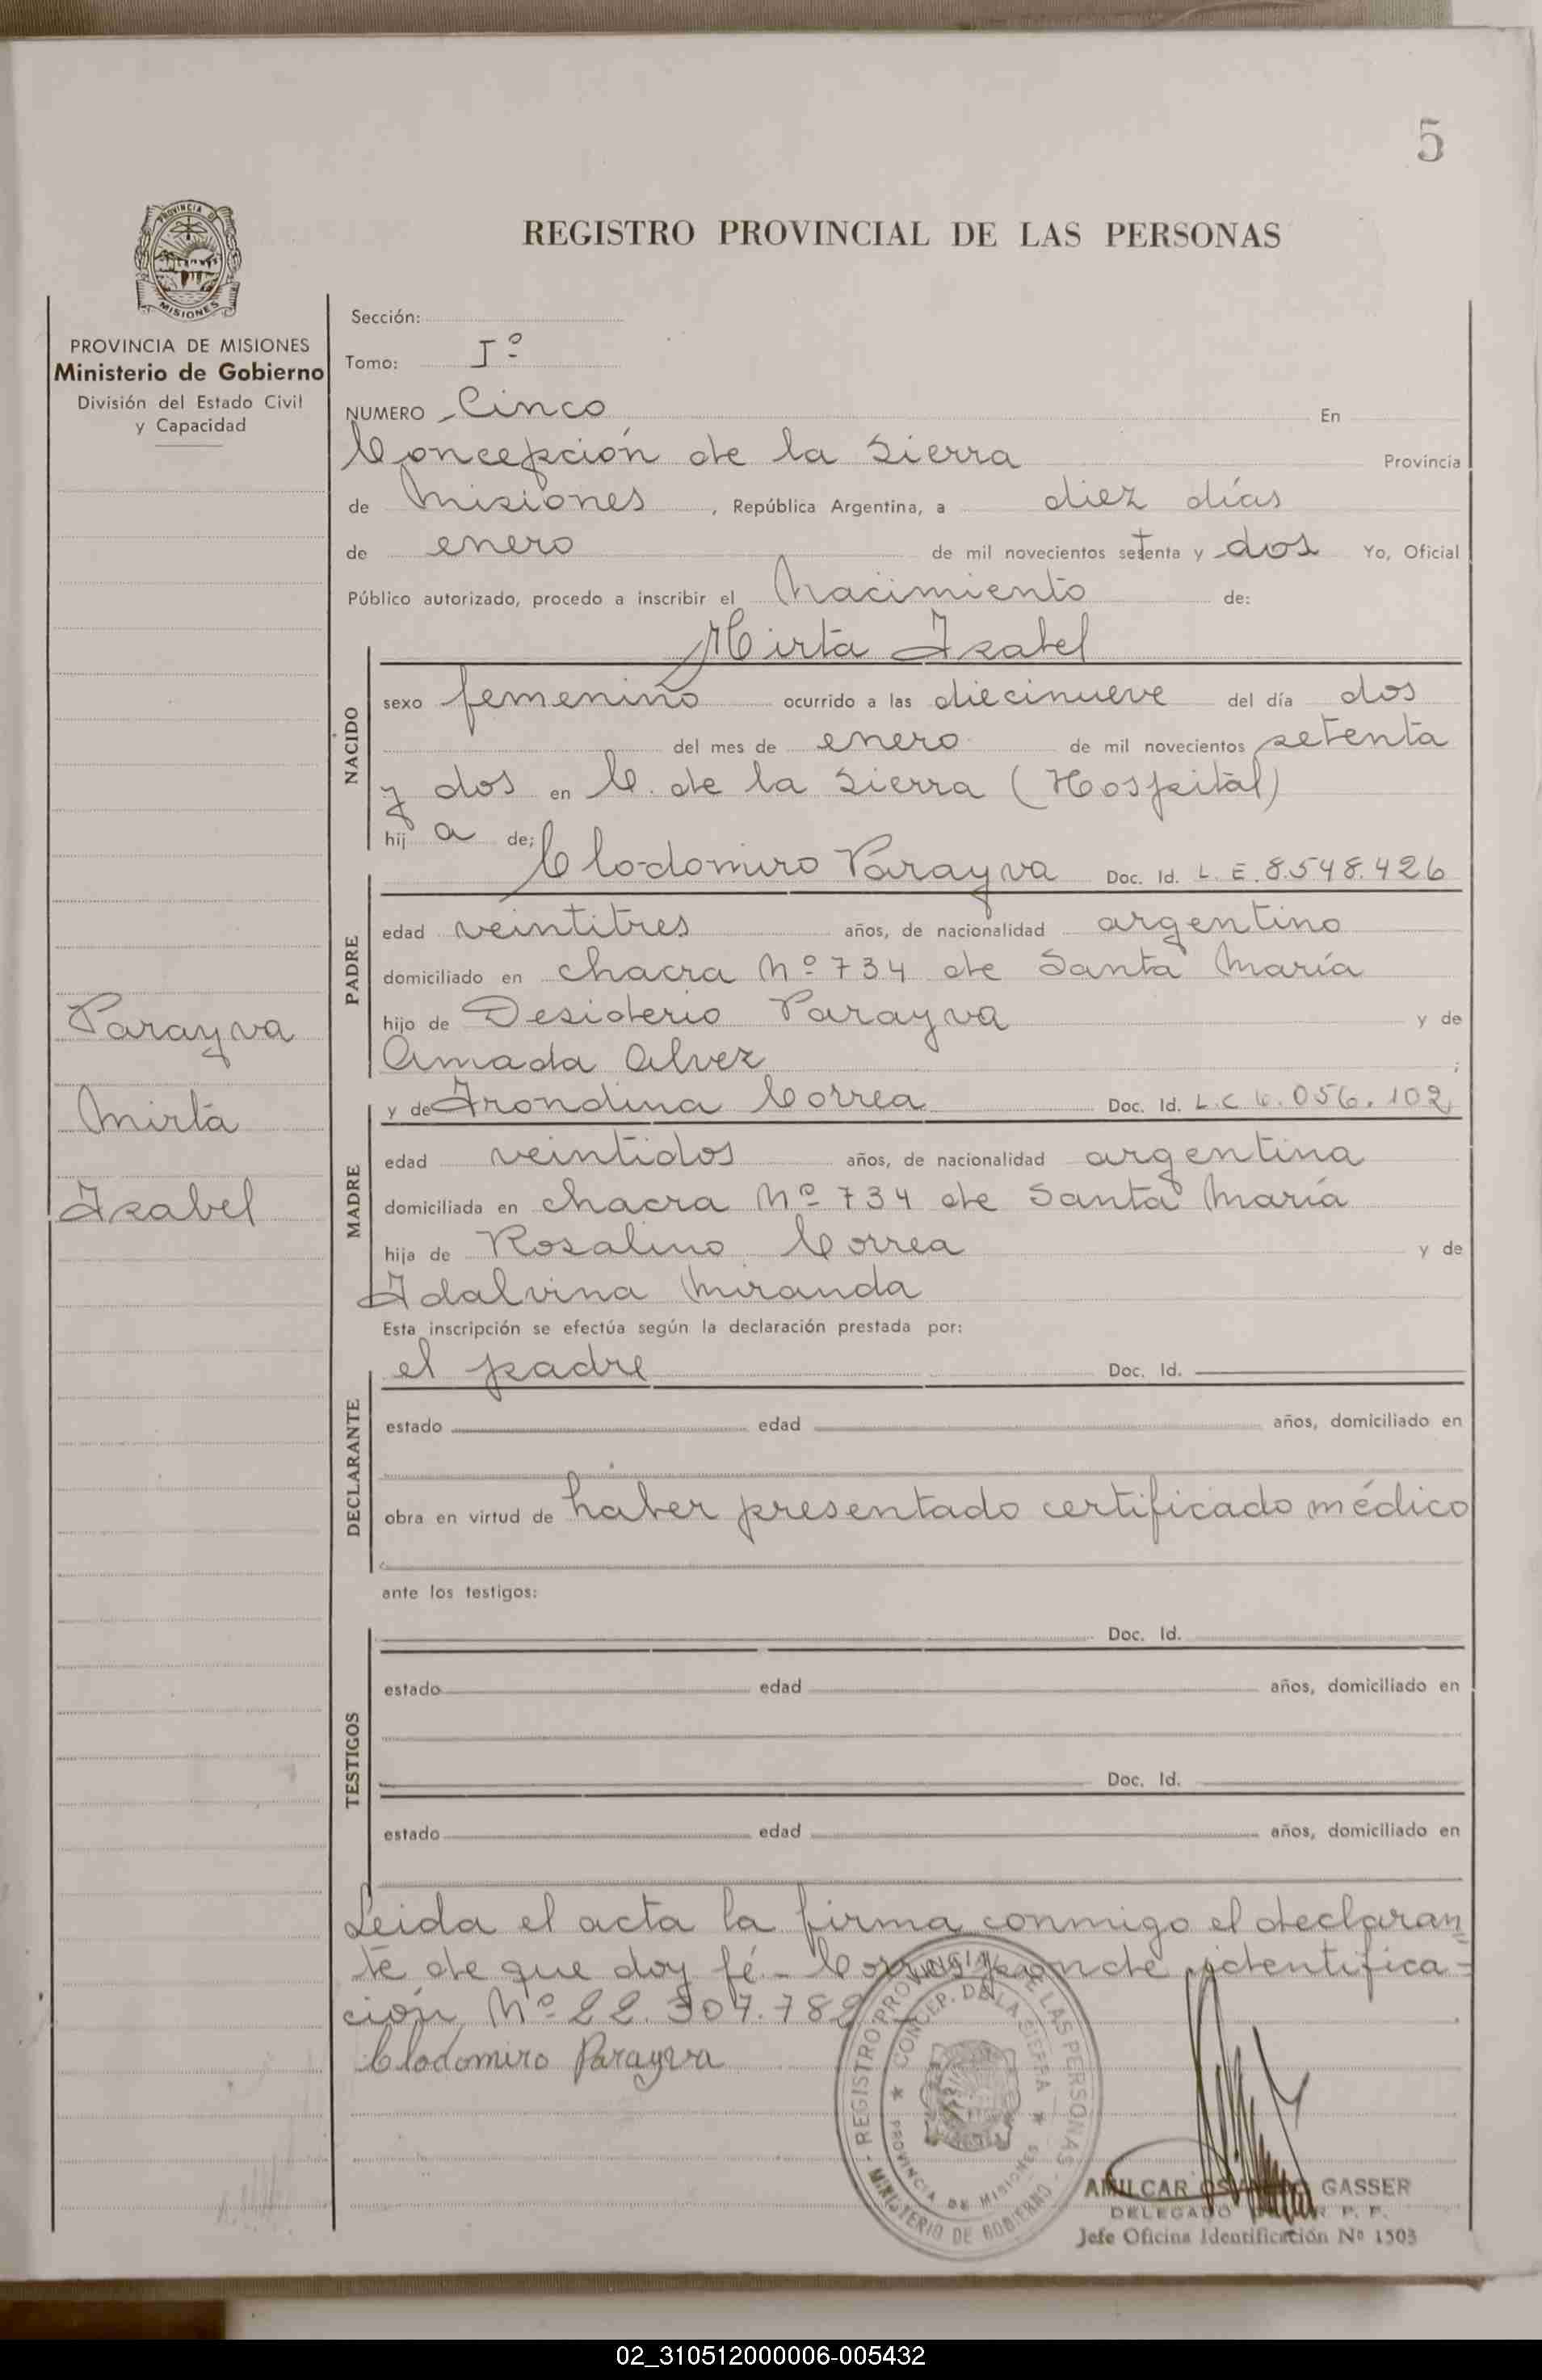 5
PROVINCIA DE
MISIONES
REGISTRO PROVINCIAL DE LAS PERSONAS
PROVINCIA DE MISIONES
Ministerio de Gobierno
División del Estado Civil
y Capacidad
Parayva
Mirta
Izabel
Sección:
Tomo: Iº
NUMERO Cinco En
Concepción de la Sierra Provincia
de Misiones, República Argentina, a diez días
de enero de mil novecientos setenta y dos Yo, Oficial
Público autorizado, procedo a inscribir el Nacimiento de:
Mirta Izabel
NACIDO
sexo femenino ocurrido a las diecinueve del día dos
del mes de enero de mil novecientos setenta
y dos en C. de la Sierra (Hospital)
hij a de;
Clodomiro Parayva Doc. Id. L. E. 8.548.426
PADRE
edad veintitres años, de nacionalidad argentino
domiciliado en chacra Nº 734 de Santa María
hijo de Desiderio Parayva y de
Amada Alvez ;
y de Irondina Correa Doc. Id. L.C 6.056.102
MADRE
edad veintidos años, de nacionalidad argentina
domiciliada en chacra Nº 734 de Santa María
hija de Rosalino Correa y de
Idalvina Miranda
Esta inscripción se efectúa según la declaración prestada por:
el padre Doc. Id.
DECLARANTE
estado edad años, domiciliado en
obra en virtud de haber presentado certificado médico
ante los testigos:
Doc. Id.
TESTIGOS
estado edad años, domiciliado en
Doc. Id.
estado edad años, domiciliado en
Leida el acta la firma conmigo el declaran
te de que doy fé.- Corresponde identifica-
ción Nº 22.307.782
Clodomiro Parayva
REGISTRO PROVINCIAL DE LAS PERSONAS
MINISTERIO DE GOBIERNO
CONCEP. DE LA SIERRA
PROVINCIA DE MISIONES
AMILCAR GASSER
DELEGADO P. P.
Jefe Oficina Identificación Nº 1503
02_310512000006-005432